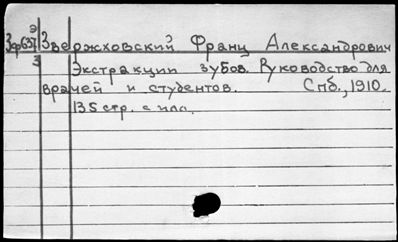 Э
Зф637 Звержховский Франц Александрович
3
Экстракции зубов. Руководство для
врачей и студентов. Спб., 1910.
135 стр. с илл.